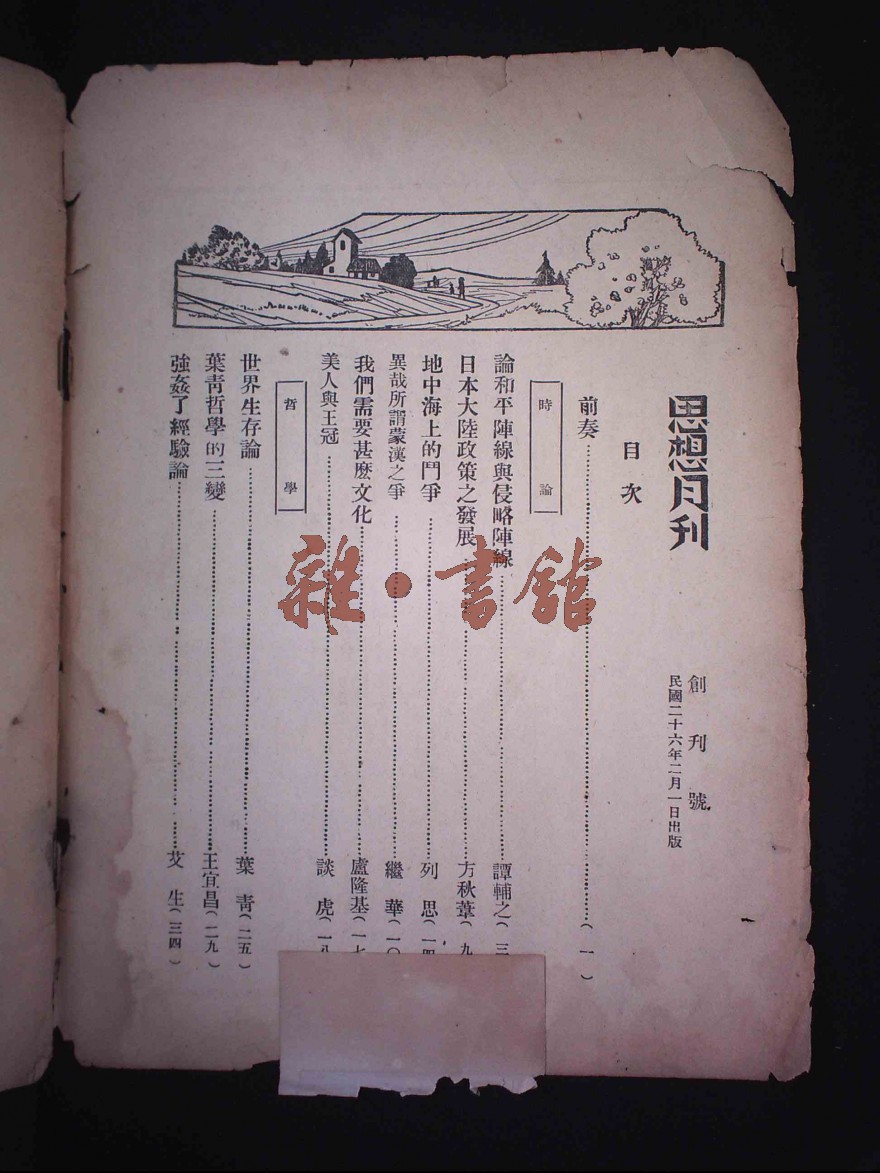 思想月刊
創刊號
民國二十六年二月一日出版
目次
前奏………(一)
時論
論和平陣線與侵略陣線………譚輔之(三
日本大陸政策之發展………方秋葦(九
地中海上的鬥爭………列思(一四
異哉所謂蒙漢之爭………繼華(一〇
我們需要甚麽文化………盧隆基(一七
美人與王冠………談虎(一八
哲學
世界生存論………葉青(二五)
葉青哲學的三變………王宜昌(二九)
強姦了經驗論………艾生(三四)
雜·書館